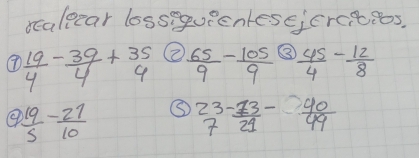 realizar lossiguientesejercicios.
① 19/4 - 39/4 + 35/4 ② 65/9 - 105/9 ③ 45/4 - 12/8
④ 19/5 - 21/10 ⑤ 23/7 - 13/21 - 40/49